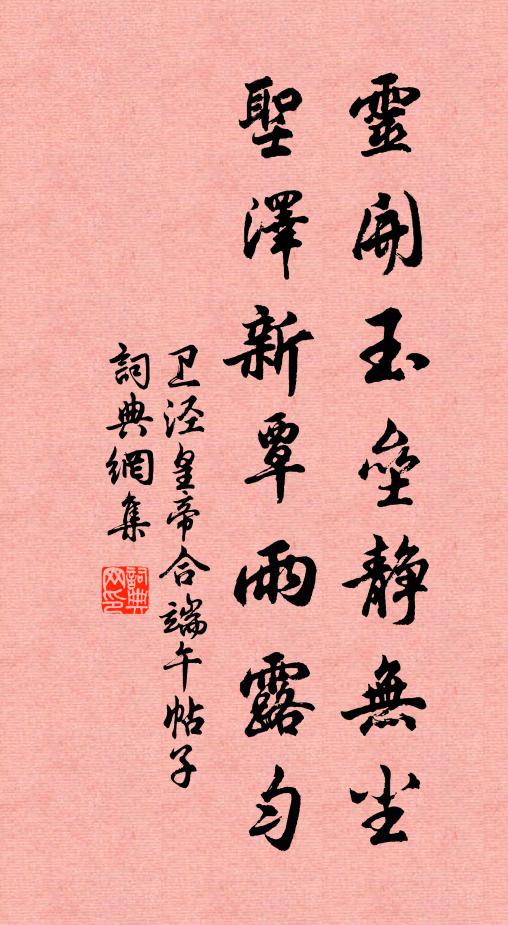 靈開玉壘静無尘
聖澤新覃雨露匀
卫泾皇帝合端午帖子
詞典網集
詞典网印